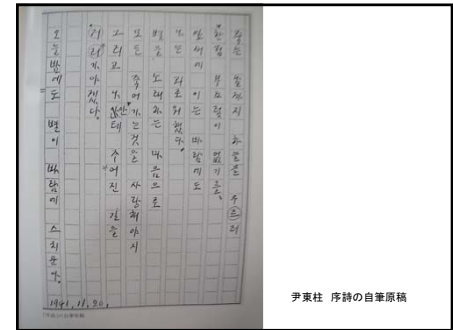 죽는 날까지 하늘을 우르러
한점 부끄럼이 없기를,
잎새에 이는 바람에도
나는 괴로워했다.
별을 노래하는 마음으로
모든 죽어가는것을 사랑해야지
그리고 나안테 주어진 길을
거러가야겠다.
오늘밤에도 별이 바람에 스치운다.
1941.11.20.
尹東柱 序詩の自筆原稿